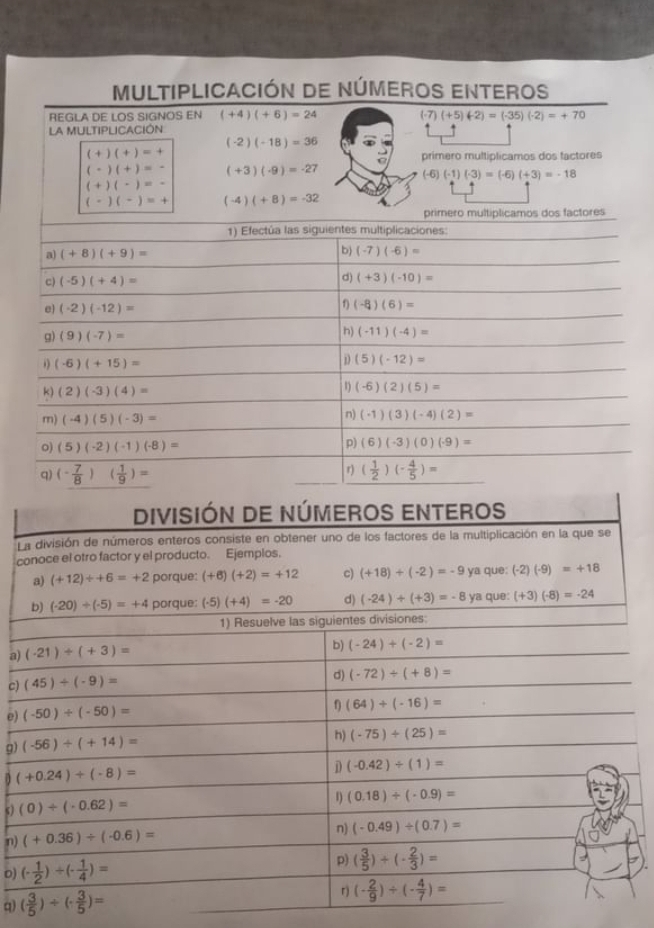 MULTIPLICACIÓN DE NÚMEROS ENTEROS
REGLA DE LOS SIGNOS EN
LA MULTIPLICACIÓN:
( + ) ( + ) = +
( - ) ( + ) = -
( + ) ( - ) = -
( - ) ( - ) = +
( +4 ) ( + 6 ) = 24
( -2 ) ( - 18 ) = 36
( +3 ) ( -9 ) = -27
( -4 ) ( + 8 ) = -32
(-7) (+5) (-2) = (-35) (-2) = + 70
primero multiplicamos dos factores
(-6) (-1) (-3) = (-6) (+3) = - 18
primero multiplicamos dos factores
1) Efectúa las siguientes multiplicaciones:
a) ( + 8 ) ( + 9 ) =
b) ( -7 ) ( -6 ) =
c) ( -5 ) ( + 4 ) =
d) ( +3 ) ( -10 ) =
e) ( -2 ) ( -12 ) =
f) ( -8 ) ( 6 ) =
g) ( 9 ) ( -7 ) =
h) ( -11 ) ( -4 ) =
i) ( -6 ) ( + 15 ) =
j) ( 5 ) ( - 12 ) =
k) ( 2 ) ( -3 ) ( 4 ) =
l) ( -6 ) ( 2 ) ( 5 ) =
m) ( -4 ) ( 5 ) ( - 3) =
n) ( -1 ) ( 3 ) ( - 4) ( 2 ) =
o) ( 5 ) ( -2 ) ( -1 ) (-8 ) =
p) ( 6 ) ( -3 ) ( 0 ) (-9 ) =
q) ( - 7/8 ) ( 1/9 ) =
r) ( 1/2 ) (- 4/5 ) =
DIVISIÓN DE NÚMEROS ENTEROS
La división de números enteros consiste en obtener uno de los factores de la multiplicación en la que se
conoce el otro factor y el producto. Ejemplos.
a) (+12) ÷ +6 = +2 porque: (+6) (+2) = +12
c) (+18) ÷ (-2 ) = - 9 ya que: (-2) (-9) = +18
b) (-20) ÷ (-5) = +4 porque: (-5) (+4) = -20
d) ( -24 ) ÷ (+3) = - 8 ya que: (+3) (-8) = -24
1) Resuelve las siguientes divisiones:
a) ( -21 ) ÷ ( + 3 ) =
b) ( - 24 ) ÷ ( - 2 ) =
c) ( 45 ) ÷ ( - 9 ) =
d) ( - 72 ) ÷ ( + 8 ) =
e) ( -50 ) ÷ ( - 50 ) =
f) ( 64 ) ÷ ( - 16 ) =
g) ( -56 ) ÷ ( + 14 ) =
h) ( - 75 ) ÷ ( 25 ) =
) ( +0.24 ) ÷ ( - 8 ) =
j) ( -0.42 ) ÷ ( 1 ) =
) ( 0 ) ÷ ( - 0.62 ) =
l) ( 0.18 ) ÷ ( - 0.9) =
) ( + 0.36 ) ÷ ( -0.6 ) =
n) ( - 0.49 ) ÷ ( 0.7 ) =
o) (- 1/2 ) ÷ (- 1/4 ) =
p) ( 3/5 ) ÷ (- 2/3 ) =
q) ( 3/5 ) ÷ (- 3/5 ) =
r) ( - 2/9 ) ÷ ( - 4/7 ) =